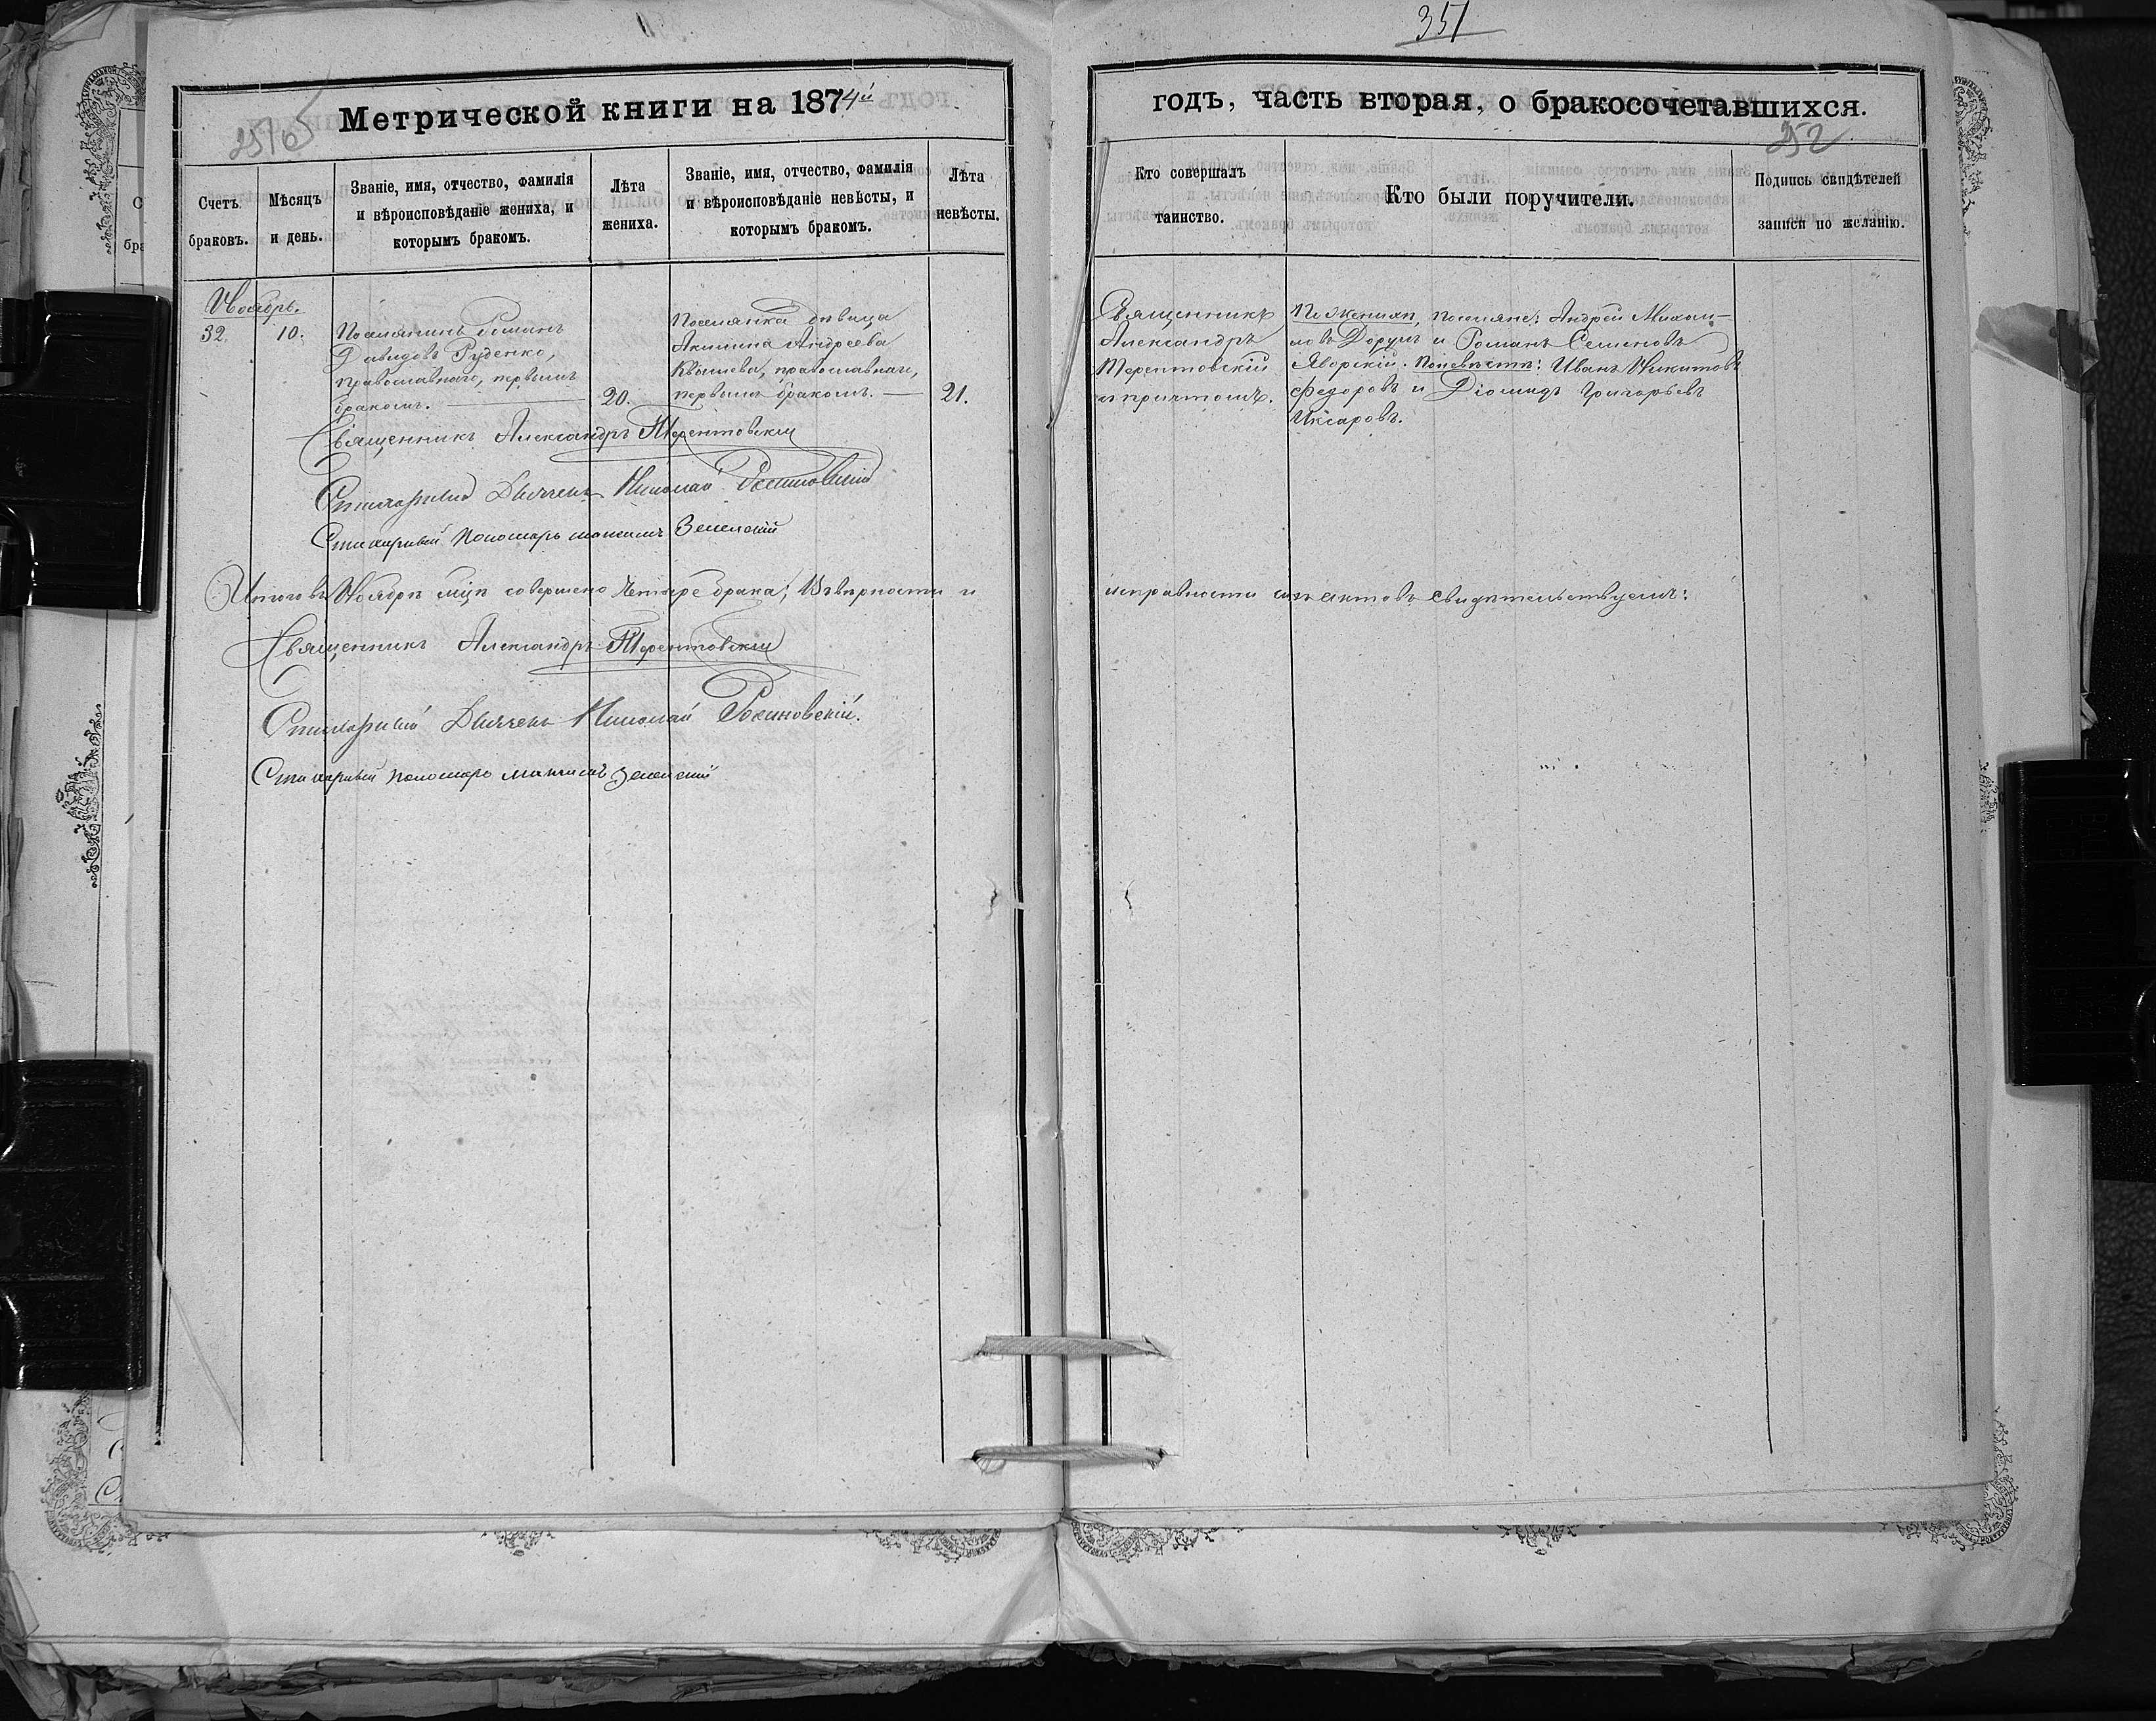 351
Метрической книги на 1874й
годъ, часть вторая, о бракосочетавшихся.
252
Счетъ браковъ.
Мѣсяцъ и день.
Званіе, имя, отчество, фамилія и вѣроисповѣданіе жениха, и которымъ бракомъ.
Лѣта жениха.
Званіе, имя, отчество, фамилія и вѣроисповѣданіе невѣсты, и которымъ бракомъ.
Лѣта невѣсты.
Кто совершалъ таинство.
Кто были поручители.
Подпись свидѣтелей записи по желанію.
Ноябрь.
32.
10.
Поселянинъ Романъ
Давидовъ Руденко,
православнаго, первымъ
бракомъ.
20.
Поселянка дѣвица
Акилина Андреева
православнаго,
первымъ бракомъ.
21.
Священникъ
Александръ
Терентовскій
съ причтомъ.
По женихѣ, поселяне: Андрей Михай-
ловъ Дорумъ и Романъ Семеновъ
Яворскій. По невѣстѣ: Иванъ Никитовъ
Федоровъ и Діомидъ Григорьевъ
Иксаровъ.
Священникъ Александръ Терентовскій
Стихарный Дьячекъ Николай
Стихарный Пономарь Максимъ Зеленскій
Итого въ Ноябрѣ мцѣ совершено четыре брака; Въ вѣрности и
исправности сихъ актовъ свидѣтельствуемъ:
Священникъ Александръ Терентовскій
Стихарный Дьячекъ Николай Росиновскій.
Стихарный Пономарь Максимъ Зеленскій